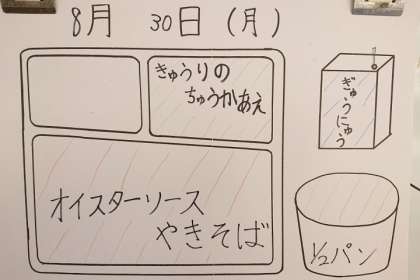 8月 30日(月)
きゅうりの
ちゅうかあえ
ぎゅうにゅう
オイスターソース
やきそば
1/2パン